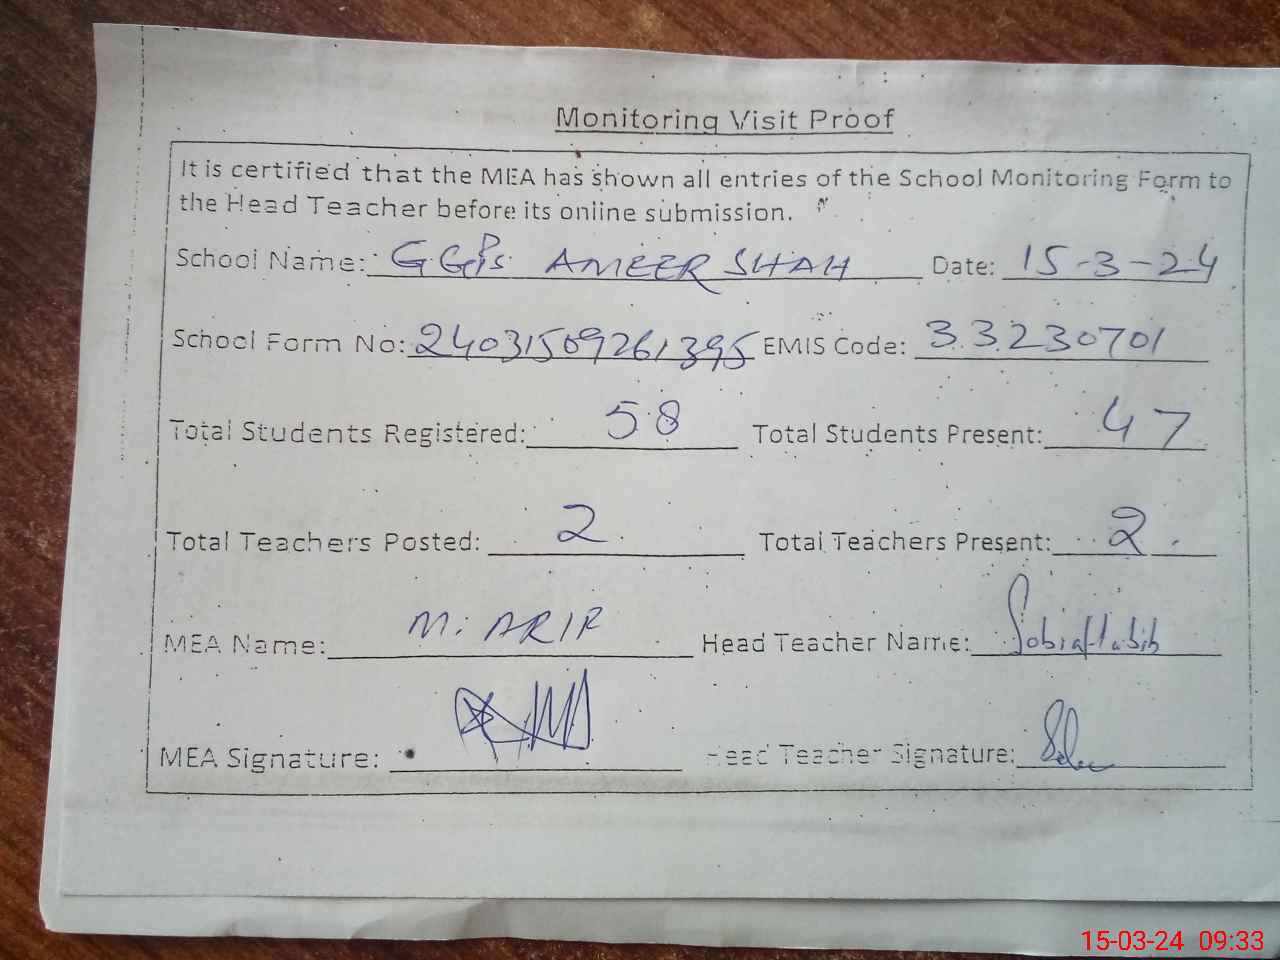 Monitoring Visit Proof
It is certified that the MEA has shown all entries of the School Monitoring Form to
the Head Teacher before its online submission.
School Name: GGPS AMEER SHAH Date: 15-3-24
School Form No: 24031509261395 EMIS Code: 33230701
Total Students Registered: 58 Total Students Present: 47
Total Teachers Posted: 2 Total Teachers Present: 2
MEA Name: M. ARIF Head Teacher Name: Sobia Habib
MEA Signature: Head Teacher Signature:
15-03-24 09:33